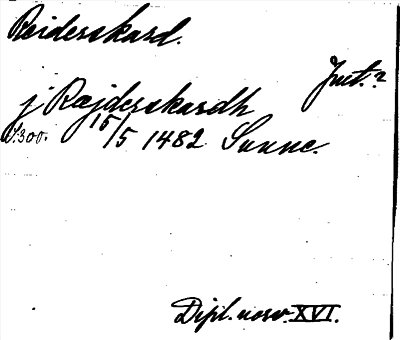 Reiderskard.
Jmt.?
j Ræjderskardh
s. 300. 15/5 1482 Sunne.
Dipl. norv. XVI.